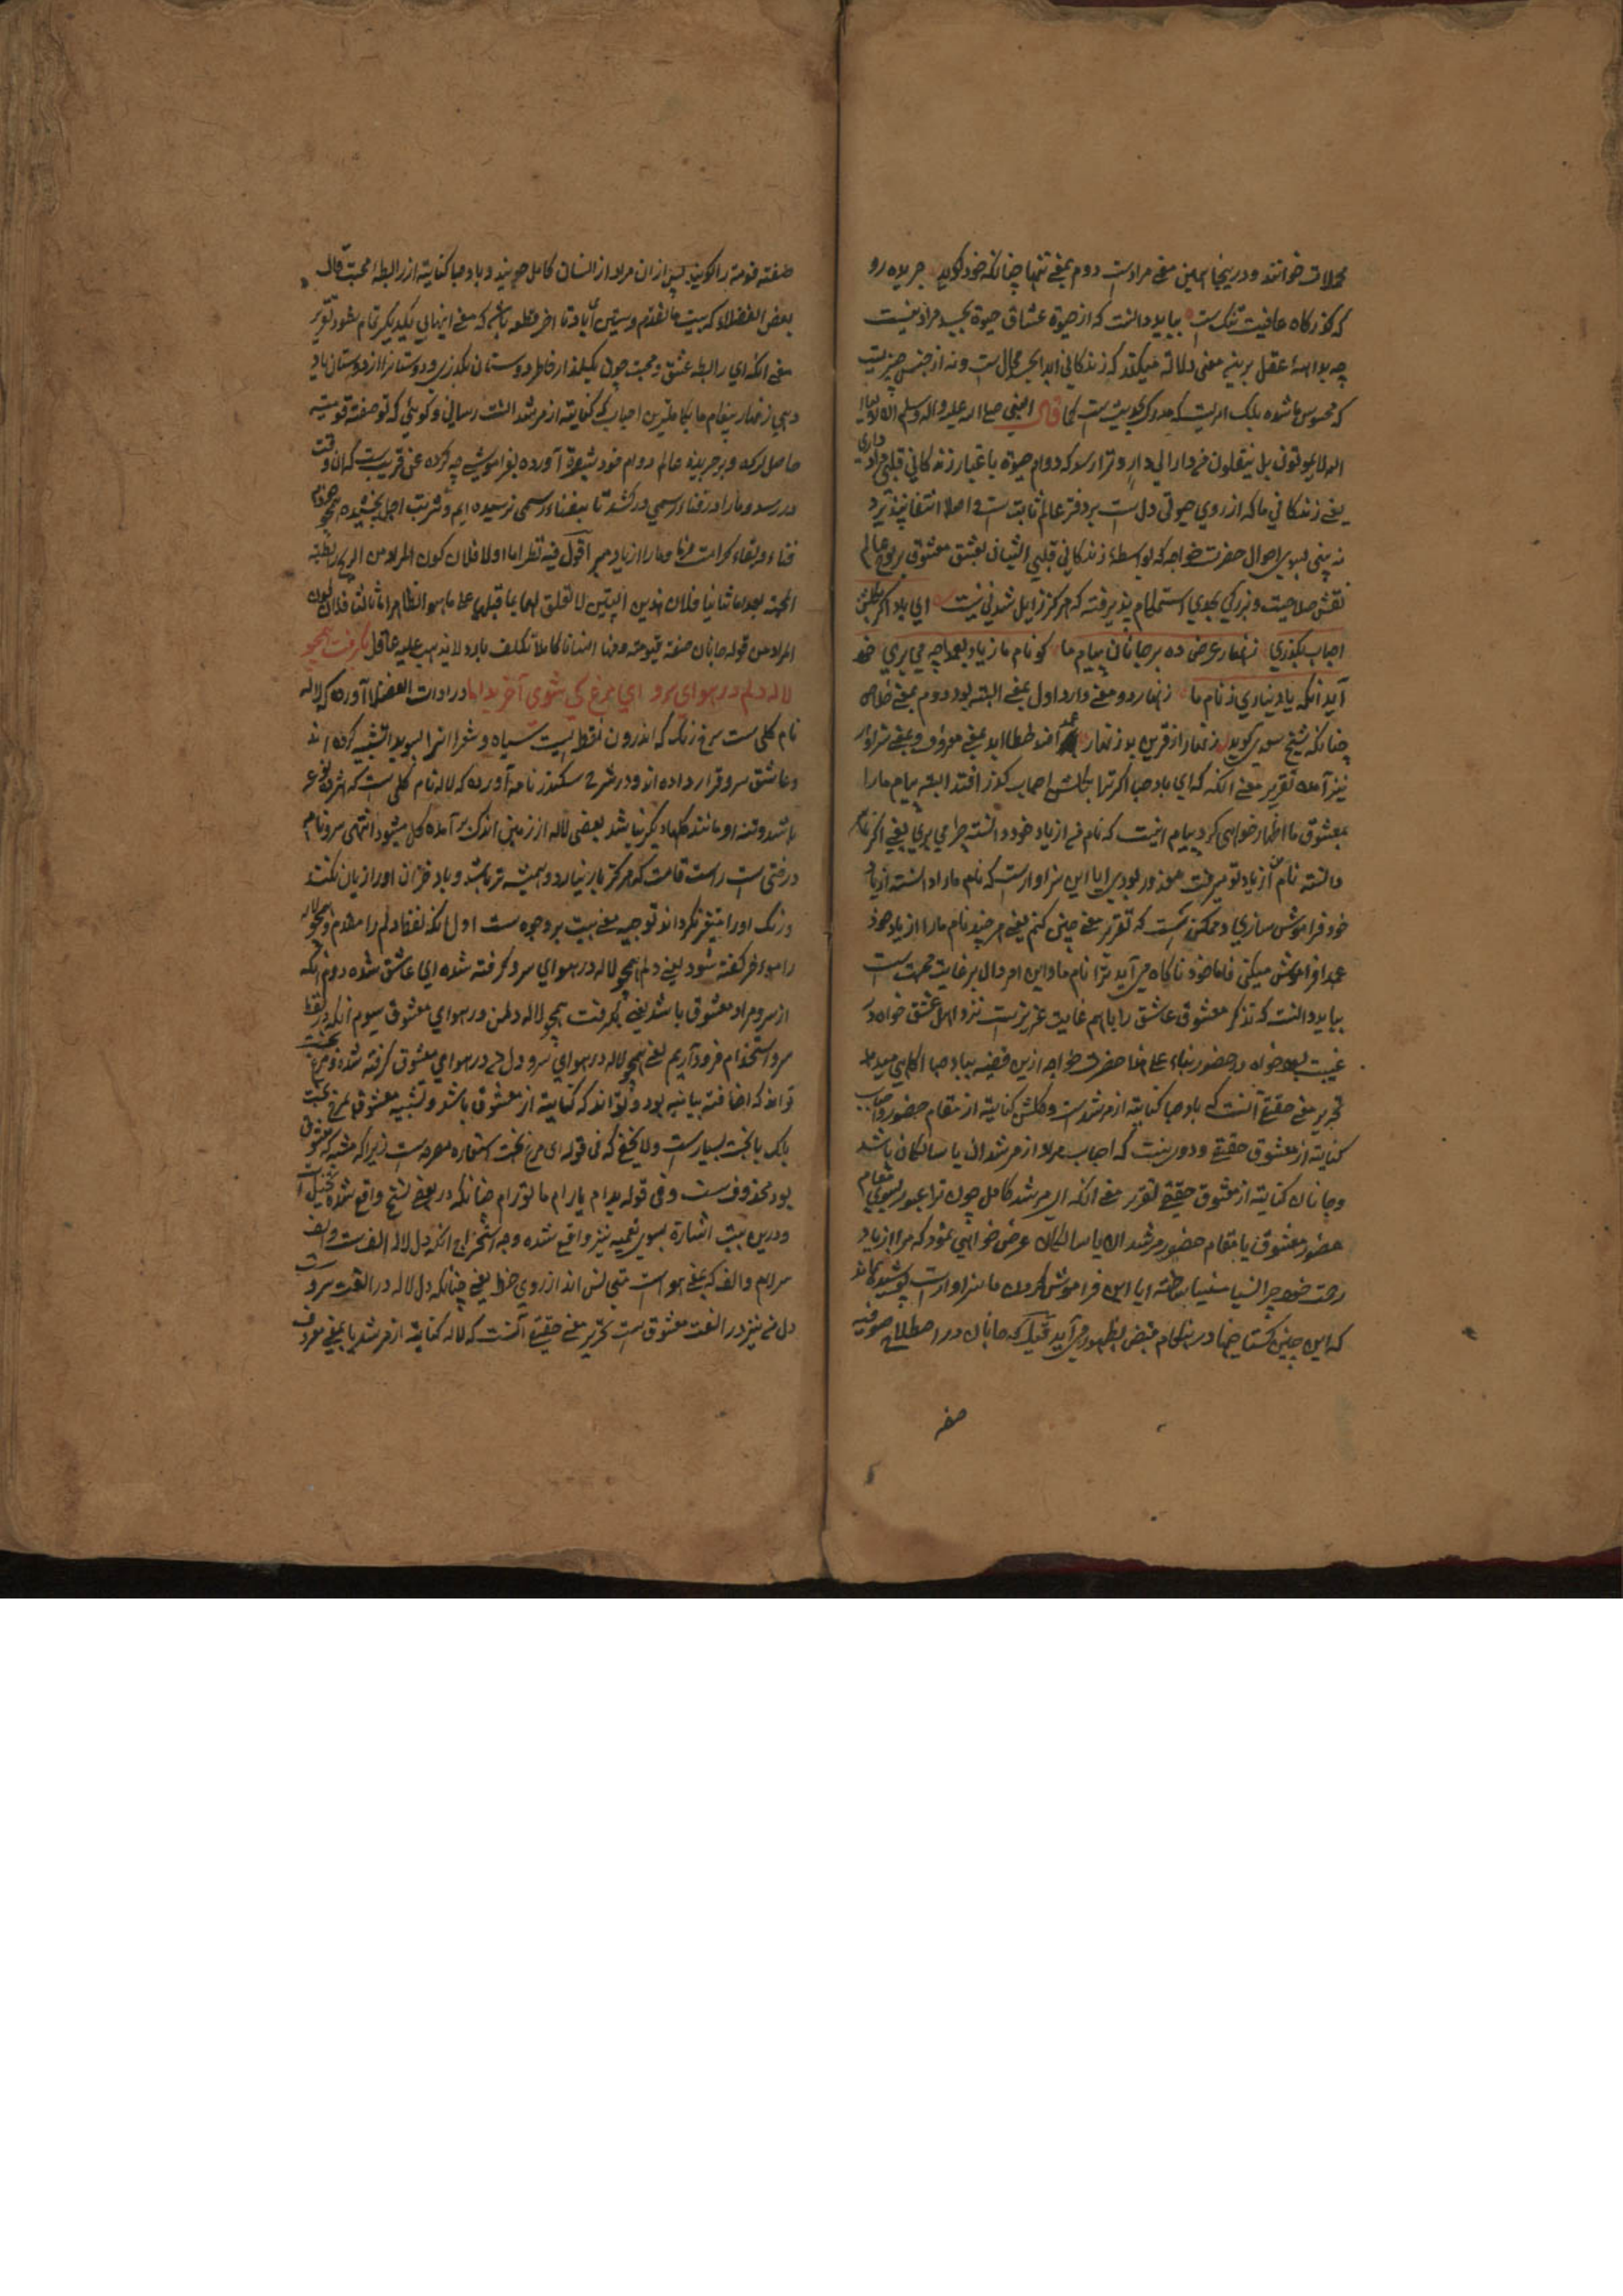 محلات خوانند و درینجا همین معنی مراد است دوم بمعنی تنها چنانکه خود گوید جریده رو
که گذرگاه عافیت تنگ است بباید دانست که از حیوة عشاق حیوة بجسد مراد نیست
چه بداهة عقل برینه معنی دلالة میکند که زندگانی ابد الجسد محال ست و نه از جنس چیزیست
که محسوس ما شده بلکه امریست که مدرک بحدیث ست کما قال النبی صلی الله علیه و آله وسلم ان اولیاء
الله لا یموتون بل ینتقلون من دار الی دار و ترا رسد که دوام حیوة باعتبار زندگانی قلبی مراد داری
یعنی زندگانی ما که از روی حیوتی دل ست بر دفتر عالم ثابت ست و اصلا انتفا نپذیرد
نه بینی بسوی احوال حضرت خواجه که بواسطۀ زندگانی قلبی ایشان بعشق معشوق بر لوح عالم
نقش صلاحیت و بزرگی بحدی استحکام پذیرفته که هرگز زایل شدنی نیست ای باد اگر بگلشن
احباب بگذری زنهار عرض ده بر جانان پیام ما گو نام ما ز یاد بعمدا چه می بری خود
آید آنکه یاد نیاری ز نام ما زنهار دو معنی دارد اول بمعنی البته بود دوم بمعنی خلاص
چنانکه شیخ سعدی گوید زنهار از قرین بد زنهار
نیز آمده تقریر معنی آنکه که ای باد صبا اگر ترا بگلشن احباب گذر افتد البته پیام ما را
بمعشوق ما اظهار خواهی کرد پیام اینست که نام من از یاد خود دانسته چرا می بری یعنی اگر نام
دانسته نام من از یاد تو میرفت معذور بودی ایا این سزاوار است که نام ما را دانسته از یاد
خود فراموش سازی و ممکن ست که تقریر معنی چنین کنم یعنی هر چند نام ما را از یاد خود
عمدا فراموش میکنی فاما خود ناگاه می آید ترا نام ما و این امر دال بر غایت محبت ست
بباید دانست که تذکر معشوق عاشق را با هم غایت عزیز ست نزد اهل عشق خواه در
غیبت بود خواه در حضور بناء علی هذا حضرت خواجه ازین قضیه بباد صبا آگاهی میدهد
تحریر معنی حقیقی آنست که باد صبا کنایة از مرشدست و گلشن کنایة از مقام حضور و احباب
کنایة از معشوق حقیقی و دور نیست که احباب مراد از مرشدان یا سالکان باشد
و جانان کنایة از معشوق حقیقی تقریر معنی آنکه ای مرشد کامل چون ترا عبور بسوی مقام
حضور معشوق یا مقام حضور مرشدان یا سالکان عرض خواهی نمود که مرا از یاد
رحمت خود چرا نسیا منسیا ساخته ایا این فراموش کردن ما سزاوار است پوشیده نماند
که این چنین گستاخیها در هنگام قبض بظهور می آید بقیل که جانان در اصطلاح صوفیه
صفة
صفته قیومة را گویند پس ازان مراد از انسان کامل جویند و باد صبا کنایة از رابطۀ محبت قال
بعض الفضلاء که بیت ما تقدم و بیتین أیاد تا اخر قطعه باشد که معنی اینهای بیکدیگر تمام بشود تقریر
معنی آنکه ای رابطۀ عشق و محبت چون بگلزار خاطر دوستان بگذری و دوستانرا از دوستان یاد
دهی زنهار پیغام ما بکاملترین احباب که کنایة از مرشد انست رسانی و گوئی که تو صفة قومیة
حاصل کرده و بر جریدۀ عالم دوام خود ثبوة آورده بفراموشی چه کرده عن قریب ست که آن وقت
در رسد و ما را در فناء رسمی در کشد تا بفناء رسمی نرسیده ایم و شربت اجل نچشیده
فناء و بقاء کرامت فرما و ما را از یاد مبر أقول فیه نظر اما اولا فلان کون المراد من الریح رابطة
المحبة بعید اما ثانیا فلان هذین البیتین لا تعلق لهما بما قبلهما علی ما هو الظاهر اما ثالثا فلان کون
المراد من قوله جانان صفة قیومة و هذا انسانا کاملا تکلف بارد لا یذهب علیه عاقل بگرفت همچو
لاله دلم در هوای سرو ای مرغ کی شوی آخر تو رام ما در ادات الفضلا آورده که لاله
نام گلی ست سرخ رنگ که اندرون نقطه ایست سیاه و شعرا انرا بسویدا تشبیه کرده اند
و عاشق سرو قرار داده اند و در شرح سکندر نامه آورده که لاله نام گلی ست که
باشد و تنه او مانند گلهاء دیگر نباشد بعضی لاله از زمین اندک بر آمده گل میشود انتهی سرو نام
درختی است راست قامت که هرگز بار نیارد و همیشه تر باشد و باد خزان او را زیان نکند
و رنگ او را متغیر نگرداند توجیه معنی بیت بر دو وجه ست اول آنکه لفظ دلم را مقدم و همچو لاله
را موءخر گفته شود یعنی دلم همچو لاله در هوای سرو گرفته شده ای عاشق شده دوم آنکه
از سرو مراد معشوق باشد یعنی بگرفت همچو لاله دل من در هوای معشوق سیوم آنکه در لفظ
سرو استخدام فرود آریم یعنی همچو لاله در هوای سرو دل من در هوای معشوق گرفته شده و مرغ بخت
تواند که اضافة بیانیه بود و تواند که کنایة از معشوق باشد و تشبیه معشوق بمرغ بخت
بلکه با بخت بسیار ست و لا یخفی که فی قوله ای مرغ بخت استعاره مصرحه ست زیرا که مشبه که معشوق
بود محذوف ست و فی قوله بدام یا رام ما تو رام چنانکه در بعضی نسخ واقع شده تخییل
و درین بیت اشارة بسوی تعمیه نیز واقع شده وجه استخراج آنکه دل لاله الف ست و الف
سرام و الف که بمعنی هواست متجانس اند از روی خط یعنی چنانکه دل لاله در الفت سرو ست
دل من نیز در الفت معشوق ست تحریر معنی حقیقی آنست که لاله کنایة از مرشد یا بمعنی معروف